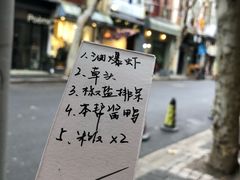 1. 油爆虾
2. 草头
3. 椒盐排条
4. 本帮酱鸭
5. 米饭 x2